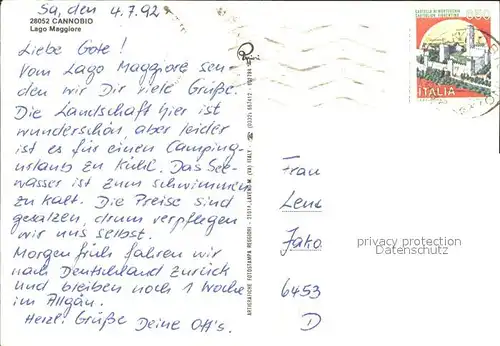 Sa, den 4.7.92
28052 CANNOBIO
Lago Maggiore
Liebe Gote!
Vom Lago Maggiore sen-
den wir Dir viele Grüße.
Die Landschaft hier ist
wunderschön, aber leider
ist es für einen Camping-
urlaub zu kühl. Das See-
wasser ist zum schwimmen
zu kalt. Die Preise sind
gesalzen, drum verpflegen
wir uns selbst.
Morgen früh fahren wir
nach Deutschland zurück
und bleiben noch 1 Woche
im Allgäu.
Herzl. Grüße Deine Ott's.
ARTIGRAFICHE FOTOSTAMPA REGGIORI - 21014 LAVENO M. (VA) ITALY
850
ITALIA
Frau
Lene
Jako
6453
D
privacy protection
Datenschutz